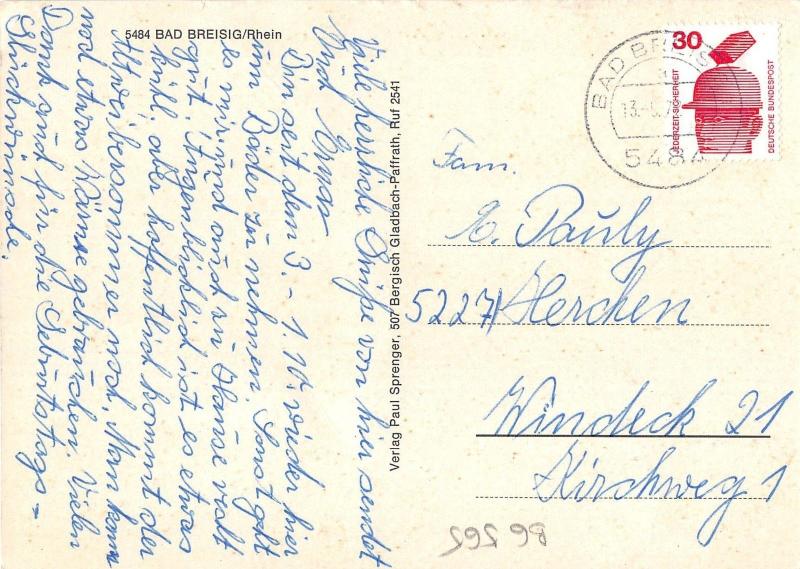 5484 BAD BREISIG/Rhein
Viele herzliche Grüße von hier sendet
Euch Erna
Bin seit dem 3. - 1.10. wieder hier
um Bäder zu nehmen. Sonst geht
es mir und auch zu Hause
gut. Augenblicklich ist es etwas
kühl, aber hoffentlich kommt der
Altweibersommer noch. Man kann
noch etwas Wärme gebrauchen. Vielen
Dank auch für die Geburtstags-
Glückwünsche.
Verlag Paul Sprenger, 507 Bergisch Gladbach-Paffrath, Ruf 2541
BAD BREISI
13.-9.7
5484
30
JEDERZEIT-SICHERHEIT
DEUTSCHE BUNDESPOST
Fam.
E. Pauly
5227 Herchen
Windeck 21
Kirchweg 1
B6 565